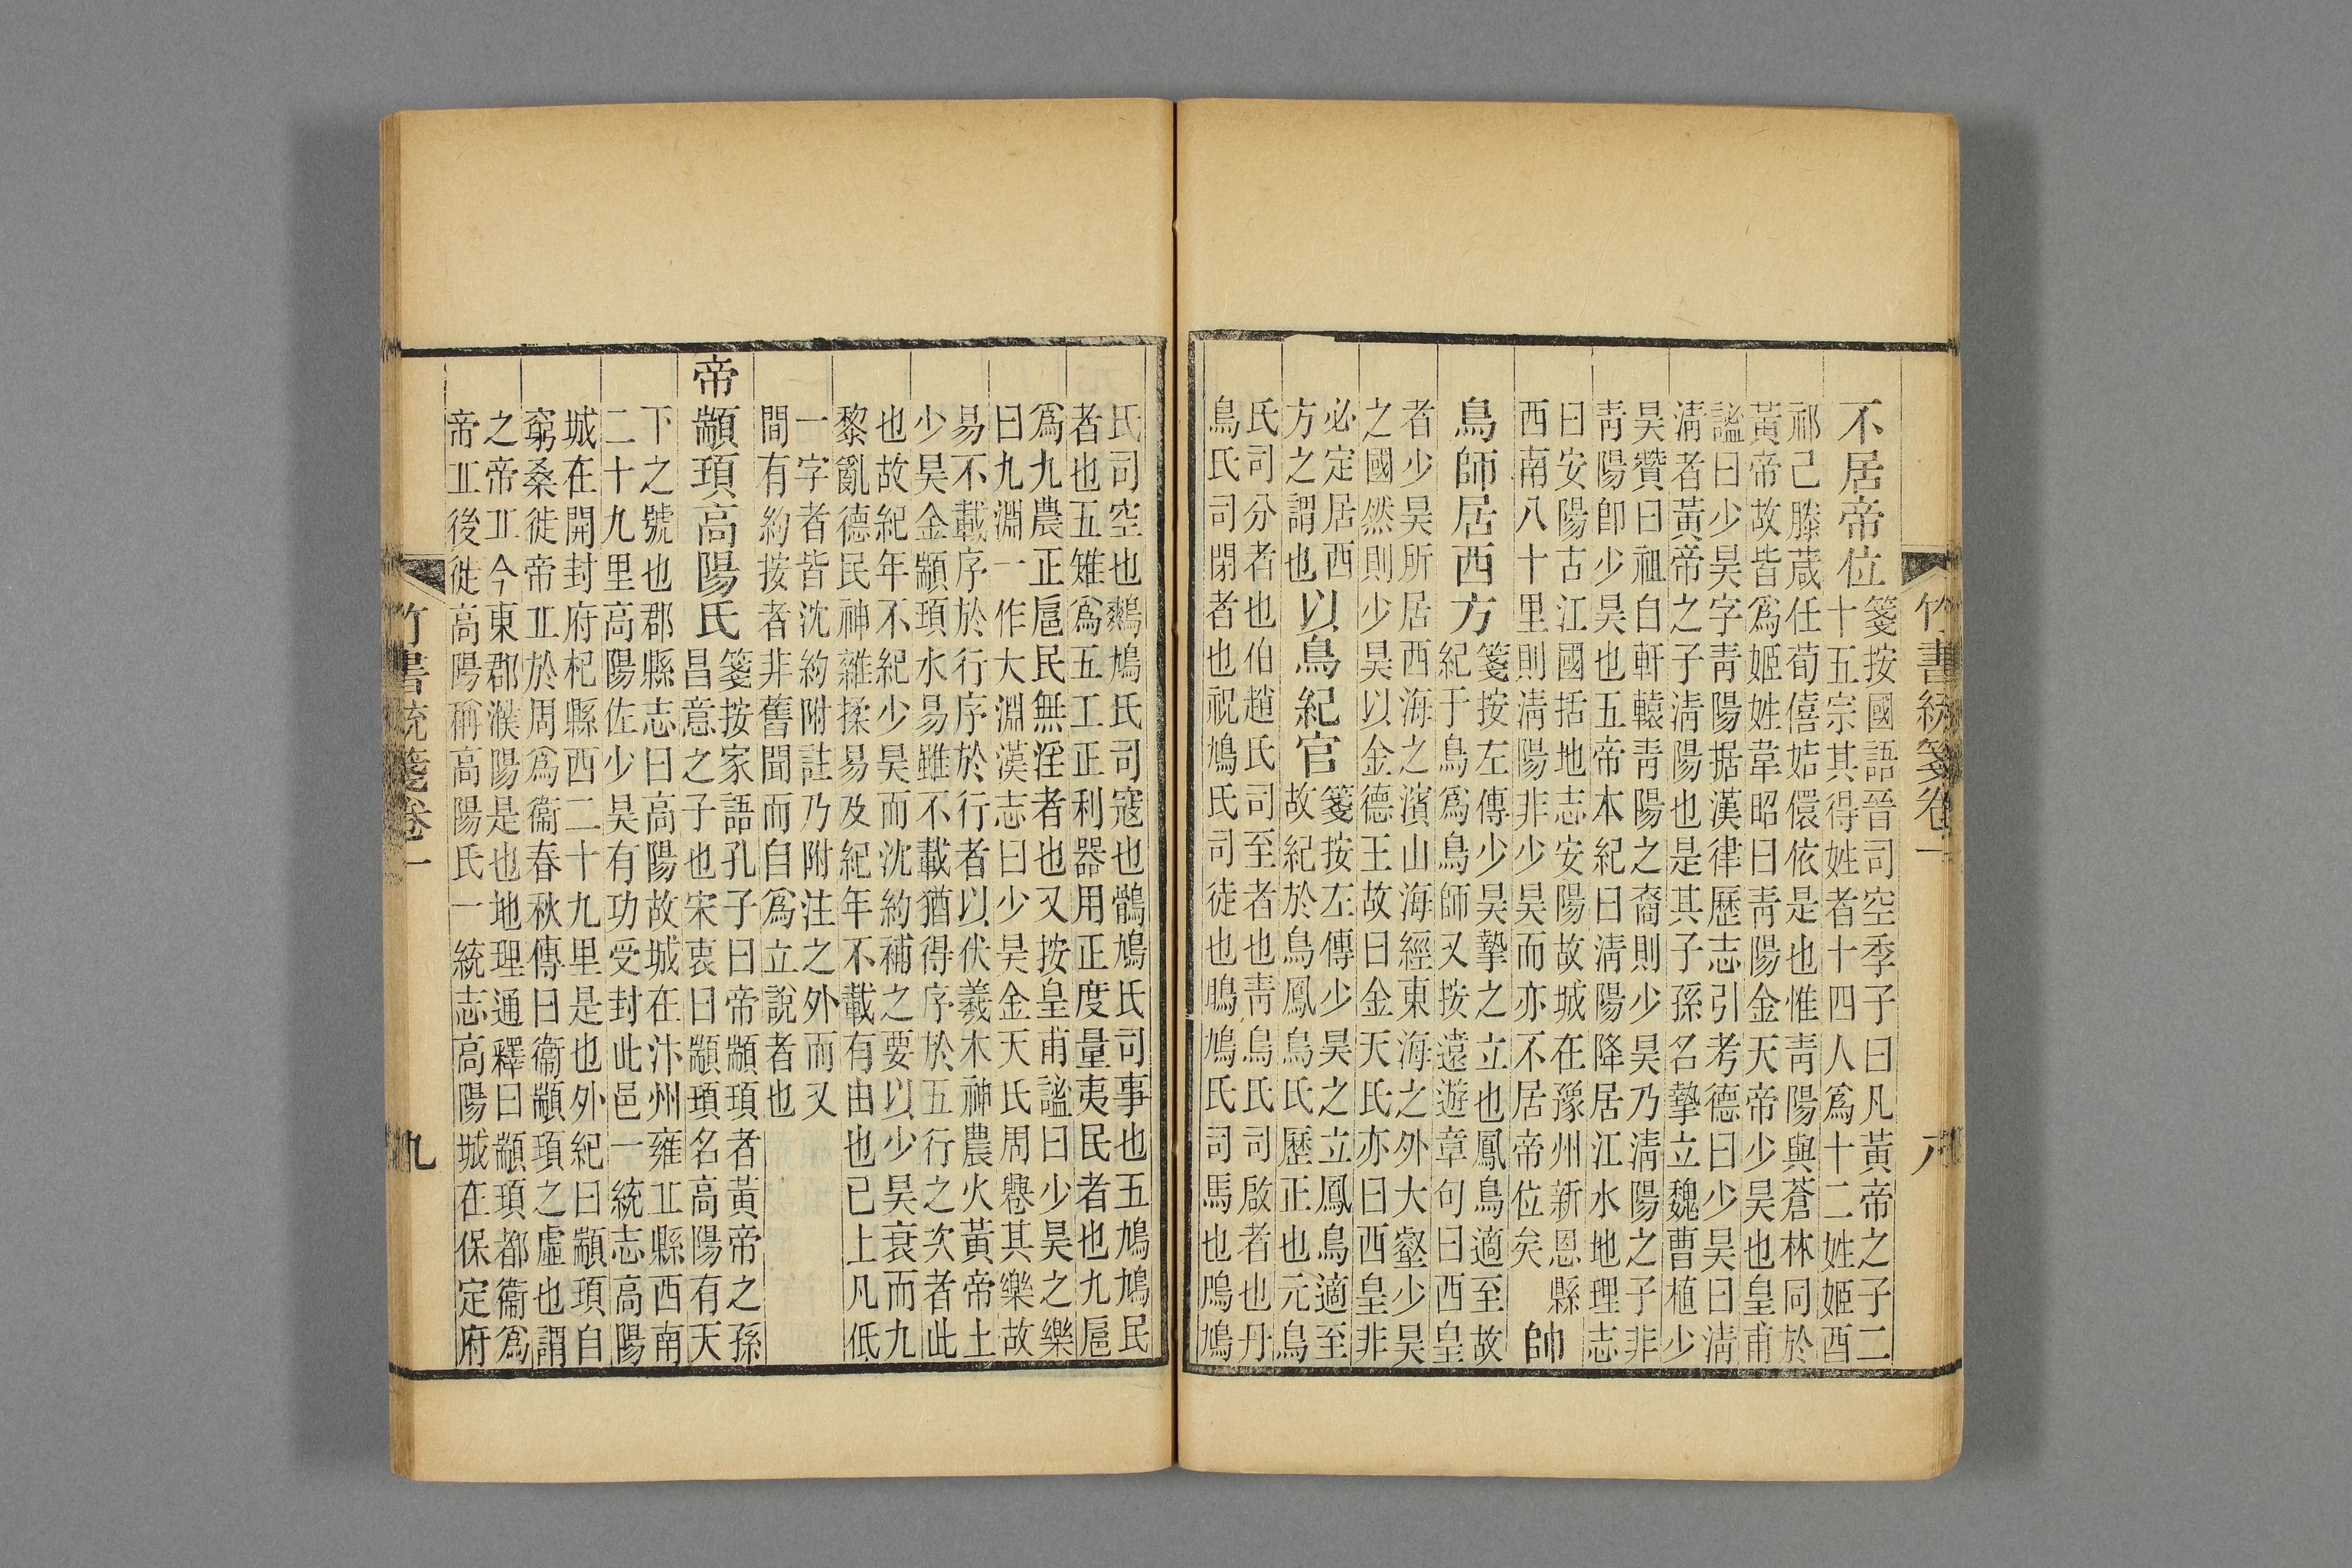 竹書統箋卷一 八
不居帝位
箋按國語晉司空季子曰凡黃帝之子二
十五宗其得姓者十四人爲十二姓姬酉
祁己滕葴任荀僖姞儇依是也惟青陽與蒼林同於
黃帝故皆爲姬姓韋昭曰青陽金天帝少昊也皇甫
謐曰少昊字青陽据漢律歷志引考德曰少昊曰淸
淸者黃帝之子淸陽也是其子孫名摯立魏曹植少
昊贊曰祖自軒轅青陽之裔則少昊乃淸陽之子非
青陽卽少昊也五帝本紀曰淸陽降居江水地理志
曰安陽古江國括地志安陽故城在豫州新恩縣
西南八十里則淸陽非少昊而亦不居帝位矣
帥
鳥師居西方
箋按左傳少昊摯之立也鳳鳥適至故
紀于鳥爲鳥師又按遠遊章句曰西皇
者少昊所居西海之濱山海經東海之外大壑少昊
之國然則少昊以金德王故曰金天氏亦曰西皇非
必定居西
方之謂也
以鳥紀官
箋按左傳少昊之立鳳鳥適至
故紀於鳥鳳鳥氏歷正也元鳥
氏司分者也伯趙氏司至者也青鳥氏司啟者也丹
鳥氏司閉者也祝鳩氏司徒也鴡鳩氏司馬也鳲鳩
氏司空也鷞鳩氏司寇也鶻鳩氏司事也五鳩鳩民
者也五雉爲五工正利器用正度量夷民者也九扈
爲九農正扈民無淫者也又按皇甫謐曰少昊之樂
曰九淵一作大淵漢志曰少昊金天氏周䙴其樂故
易不載序於行序於行者以伏羲木神農火黃帝土
少昊金顓頊水易雖不載猶得序於五行之次者此
也故紀年不紀少昊而沈約補之要以少昊衰而九
黎亂德民神雜揉易及紀年不載有由也已上凡低
一字者皆沈約附註乃附注之外而又
間有約按者非舊聞而自爲立說者也
帝顓頊高陽氏
箋按家語孔子曰帝顓頊者黃帝之孫
昌意之子也宋衷曰顓頊名高陽有天
下之號也郡縣志曰高陽故城在汴州雍丠縣西南
二十九里高陽佐少昊有功受封此邑一統志高陽
城在開封府杞縣西二十九里是也外紀曰顓頊自
窮桑徙帝丠於周爲衞春秋傳曰衞顓頊之虛也謂
之帝丠今東郡濮陽是也地理通釋曰顓頊都衞爲
帝丠後徙高陽稱高陽氏一統志高陽城在保定府
竹書統箋卷一 九